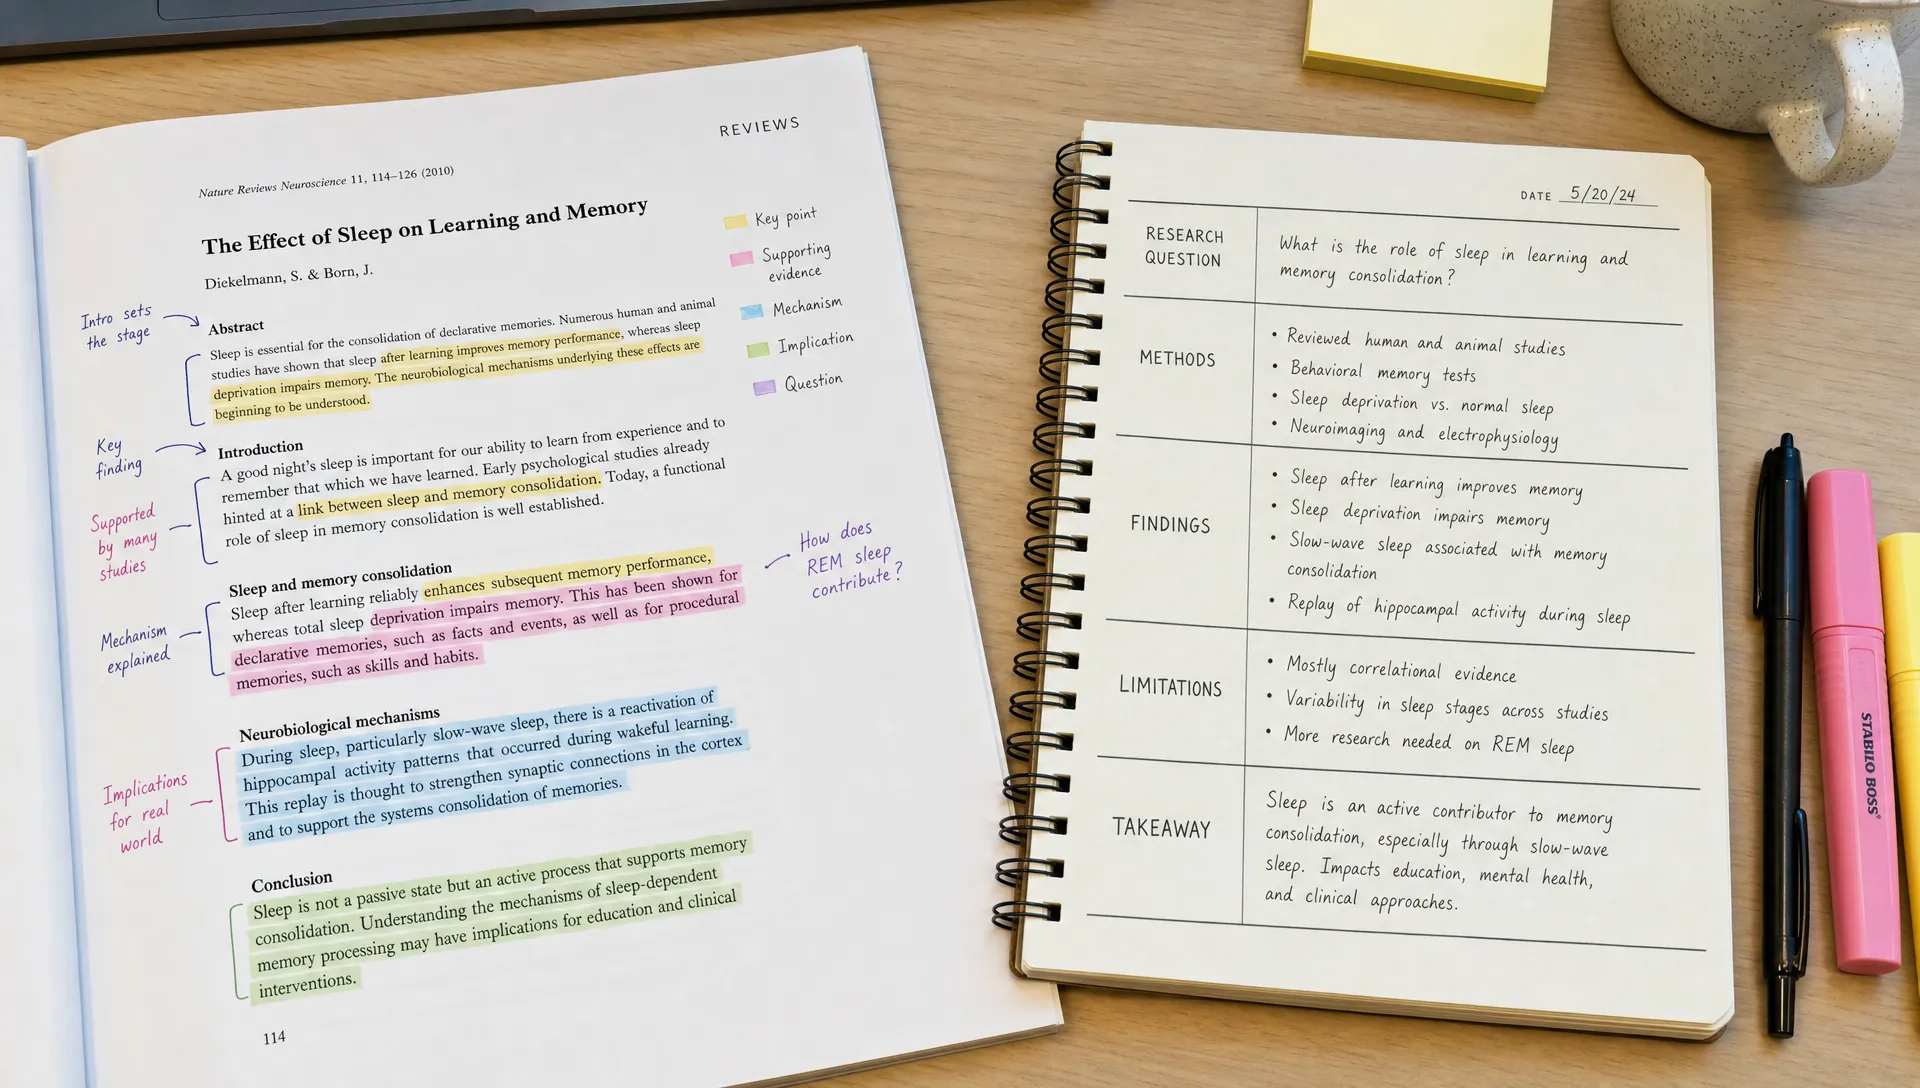 REVIEWS
Nature Reviews Neuroscience 11, 114–126 (2010)
The Effect of Sleep on Learning and Memory
Diekelmann, S. & Born, J.
Key point
Supporting
evidence
Mechanism
Implication
Question
Intro sets
the stage
Abstract
Sleep is essential for the consolidation of declarative memories. Numerous human and animal
studies have shown that sleep after learning improves memory performance, whereas sleep
deprivation impairs memory. The neurobiological mechanisms underlying these effects are
beginning to be understood.
Key
finding
Introduction
A good night's sleep is important for our ability to learn from experience and to
remember that which we have learned. Early psychological studies already
hinted at a link between sleep and memory consolidation. Today, a functional
role of sleep in memory consolidation is well established.
Supported
by many
studies
How does
REM sleep
contribute?
Sleep and memory consolidation
Sleep after learning reliably enhances subsequent memory performance,
whereas total sleep deprivation impairs memory. This has been shown for
declarative memories, such as facts and events, as well as for procedural
memories, such as skills and habits.
Mechanism
explained
Neurobiological mechanisms
During sleep, particularly slow-wave sleep, there is a reactivation of
hippocampal activity patterns that occurred during wakeful learning.
This replay is thought to strengthen synaptic connections in the cortex
and to support the systems consolidation of memories.
Implications
for real
world
Conclusion
Sleep is not a passive state but an active process that supports memory
consolidation. Understanding the mechanisms of sleep-dependent
memory processing may have implications for education and clinical
interventions.
114
DATE 5/20/24
RESEARCH
QUESTION
What is the role of sleep in learning and
memory consolidation?
METHODS
• Reviewed human and animal studies
• Behavioral memory tests
• Sleep deprivation vs. normal sleep
• Neuroimaging and electrophysiology
FINDINGS
• Sleep after learning improves memory
• Sleep deprivation impairs memory
• Slow-wave sleep associated with memory
consolidation
• Replay of hippocampal activity during sleep
LIMITATIONS
• Mostly correlational evidence
• Variability in sleep stages across studies
• More research needed on REM sleep
TAKEAWAY
Sleep is an active contributor to memory
consolidation, especially through slow-wave
sleep. Impacts education, mental health,
and clinical approaches.
STABILO BOSS®